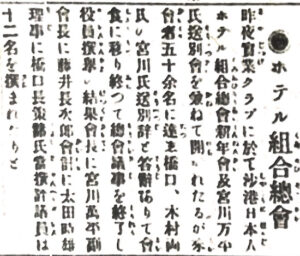 ●ホテル組合總會
昨夜實業クラブに於て沙港日本人
ホテル組合總會新年會及宮川万平
氏送別會を兼ねて開られたるが參
會者五十余名に達し橋口、木村両
氏の宮川氏送別辞と答辭ありて會
食に移り終つて總會議事を終了し
役員撰擧の結果會長に宮川萬平副
會長に藤井長次郎會計に太田時雄
理事に橋口長 氏當撰評議員は
十二名を撰まれたりと